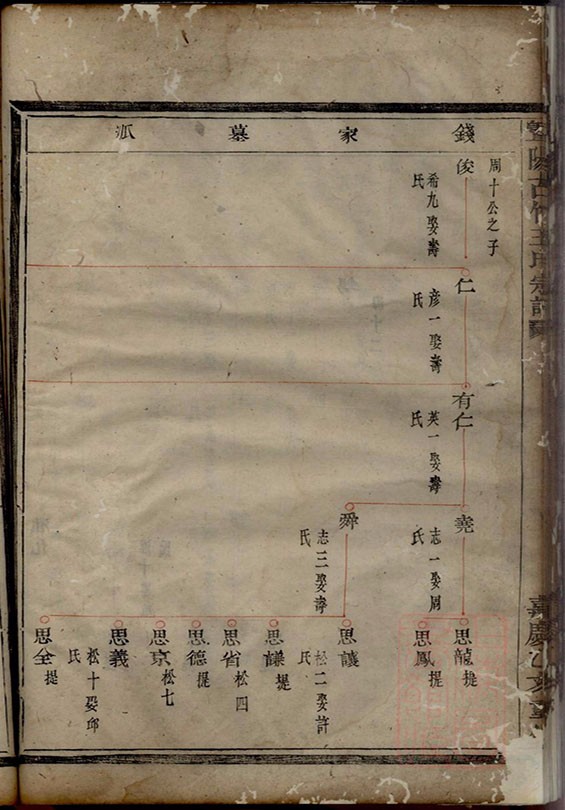 錢家墓派
俊
周十公之子
希九娶壽氏
仁
彦一娶壽氏
有仁
英一娶壽氏
堯
志一娶周氏
舜
志三娶壽氏
思龍
提
思鳳
提
思讓
松二娶許氏
思謙
提
思省
松四
思德
提
思京
松七
思義
松十娶邱氏
思全
提
陽古竹王氏宗譜
嘉慶乙亥